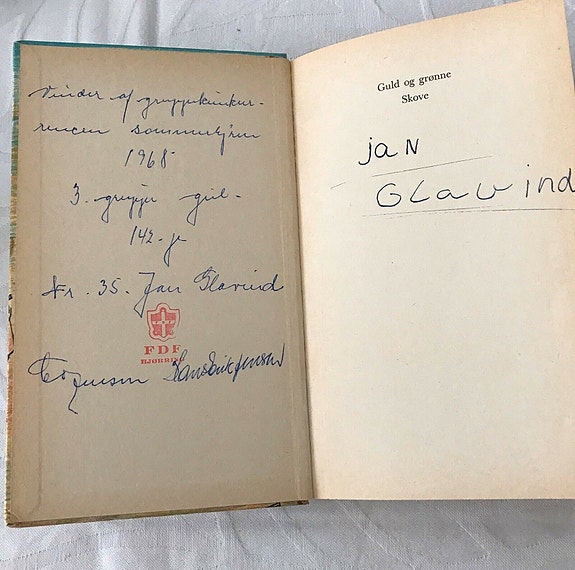 Vinder af gruppekonkur-
rencen sommerlejren
1968
3. gruppe gul -
142. p
Nr. 35. Jan Glavind
FDF
HJØRRING
Jensen Hans Erik Jensen
Guld og grønne
Skove
jaN
GLavind